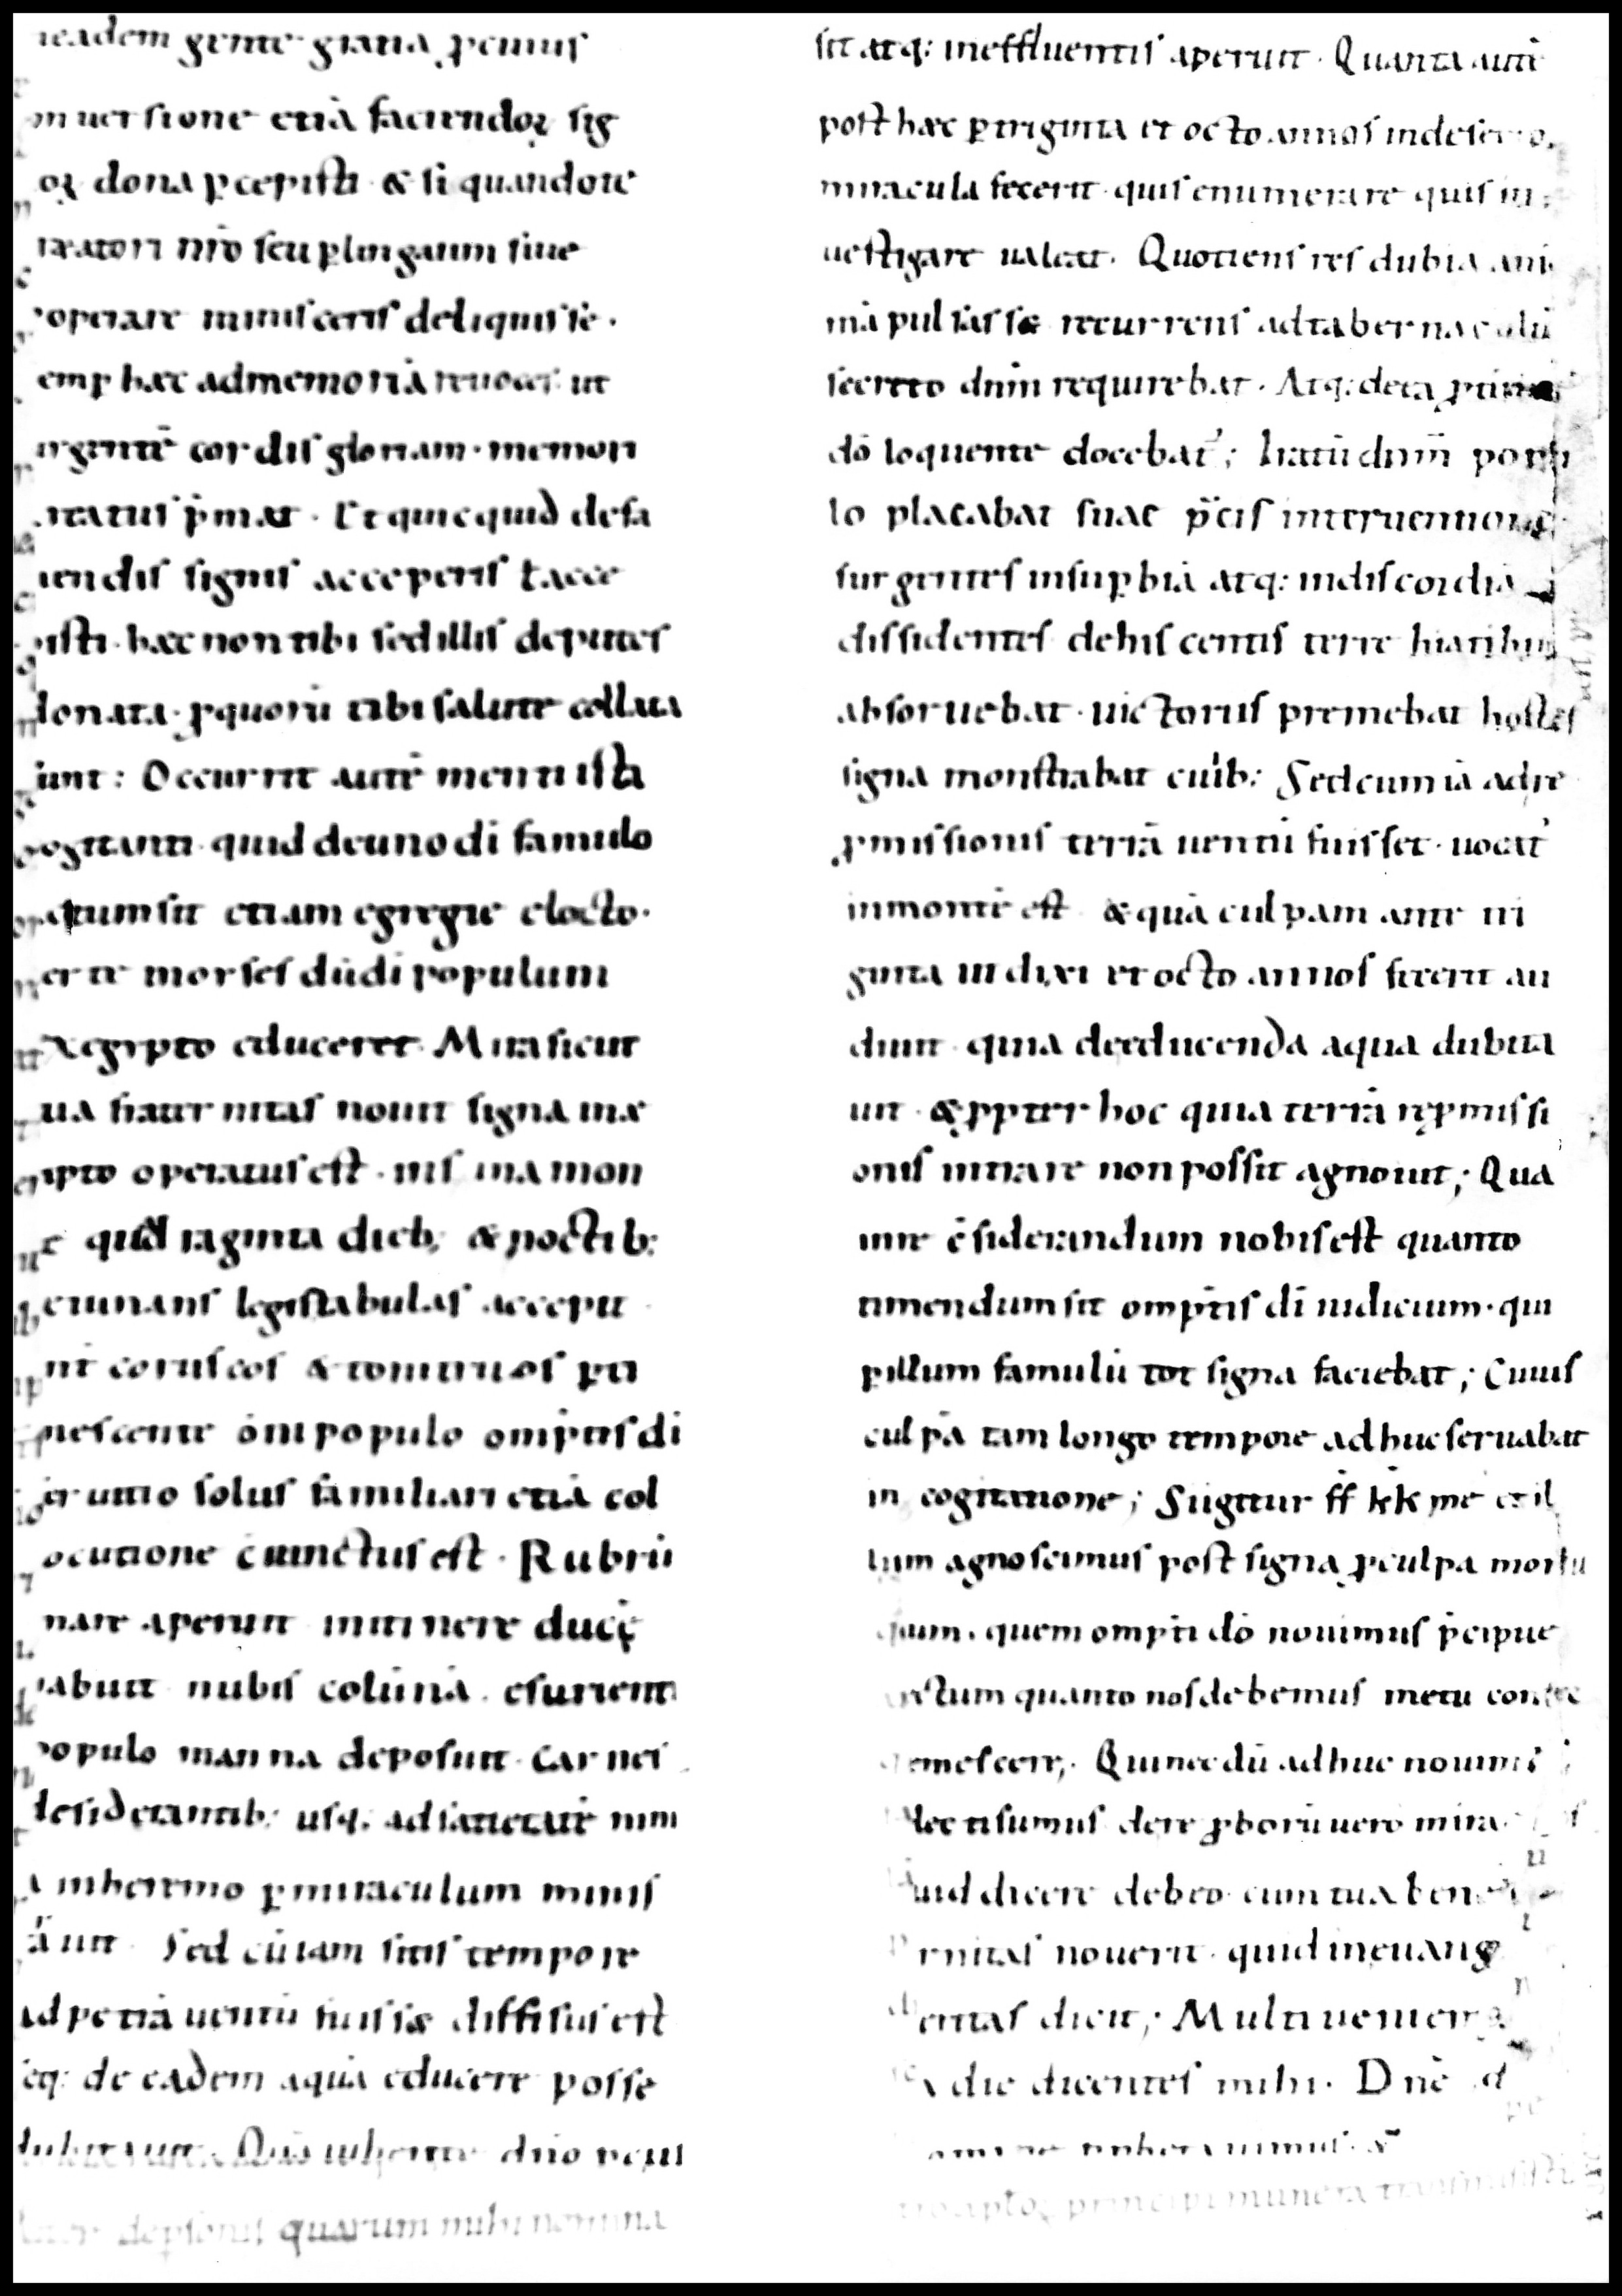 eadem gente gratia ꝓ cuius
onuersione etiā faciendoꝝ sig
oꝝ dona ꝑcepisti · & si quandote
creatori nr̄o seu ꝑ linguam siue
operare minisceris deliquisse ·
semꝑ haec admemoriā reuoces · ut
urgentē cordis gloriam · memori
reatus p̄mat · Et quicquid defa
ciendis signis acceperis ł acce
pisti · haec non tibi sed illis deputes
donata · ꝓ quorū tibi salute collata
sunt : Occurrit autē menti ista
cogitanti · quid de uno dī famulo
actum sit etiam egregie electo ·
certe morses dū dī populum
ex aegypto educeret Mira sicut
tua fraternitas nouit signa in ae
gipto operatus est · in sina mon
te quadraginta dieb; & noctib:
ieiunans legis tabulas accepit
int coruscos & tonitruos ꝑti
mescente om̄i populo omp̄tis dī
seruitio solus familiari etiā col
locutione cōiunctus est · Rubrū
mare aperuit in itinere ducē
habuit nubis colūnā · esurienti
populo manna deposuit · Carnes
desiderantib; usq; ad satietatē nimi
ā in heremo ꝑ miraculum minis
rauit Sed cū iam sitis tempore
ad petrā uentū fuissæ diffisus est
seq: de eadem aquā educere posse
dubitauit · Quā iubente dn̄o
depsonis quarum mihi nomina
sit atq: in effluentis aperuit · Quanta autē
post haec ꝑ triginta et octo annos in deserto
miracula fecerit · quis enumerare quis in
uestigare ualeat · Quotiens res dubia ani
mā pulsassæ recurrens ad tabernaculū
secreto dn̄m requirebat · Atq: de ea ꝓtinus
dō loquente docebat᷑ ; Iratū dn̄m popu
lo placabat suae p̄cis interuentione
surgentes in suꝑbiā atq: in discordiā
dissidentes dehiscentis terre hiatibus
absoruebat · uictoriis premebat hostes
signa monstrabat ciuib: Sed cum iā ad re
ꝓmissionis terrā uentū fuisset · uocat᷑
in monte est & quā culpam ante tri
ginta ut dixi et octo annos fecerit au
diuit quia de educenda aqua dubita
uit · & ꝓpter hoc quia terrā reꝓmissi
onis intrare non possit agnouit ; Qua
in re c̄siderandum nobis est quanto
timendum sit omp̄tis dī iudicium · qui
ꝑ illum famulū tot signa faciebat ; Cuius
culpā tam longo tempore adhuc seruabat
in cogitatione ; Si igitur ff kk me et il
lum agnoscimus post signa ꝓ culpa mortu
um · quem omp̄ti dō nouimus p̄cipue
electum quanto nos debemus metu contre
mescere ; · Qui necdū adhuc nouimus
electi sumus de reꝓborū uero mira
uid dicere debeo · cum tua bene
ernitas nouerit · quid in euang
eritas dicit ; · Multi uenient
a die dicentes mihi · Dn̄e d